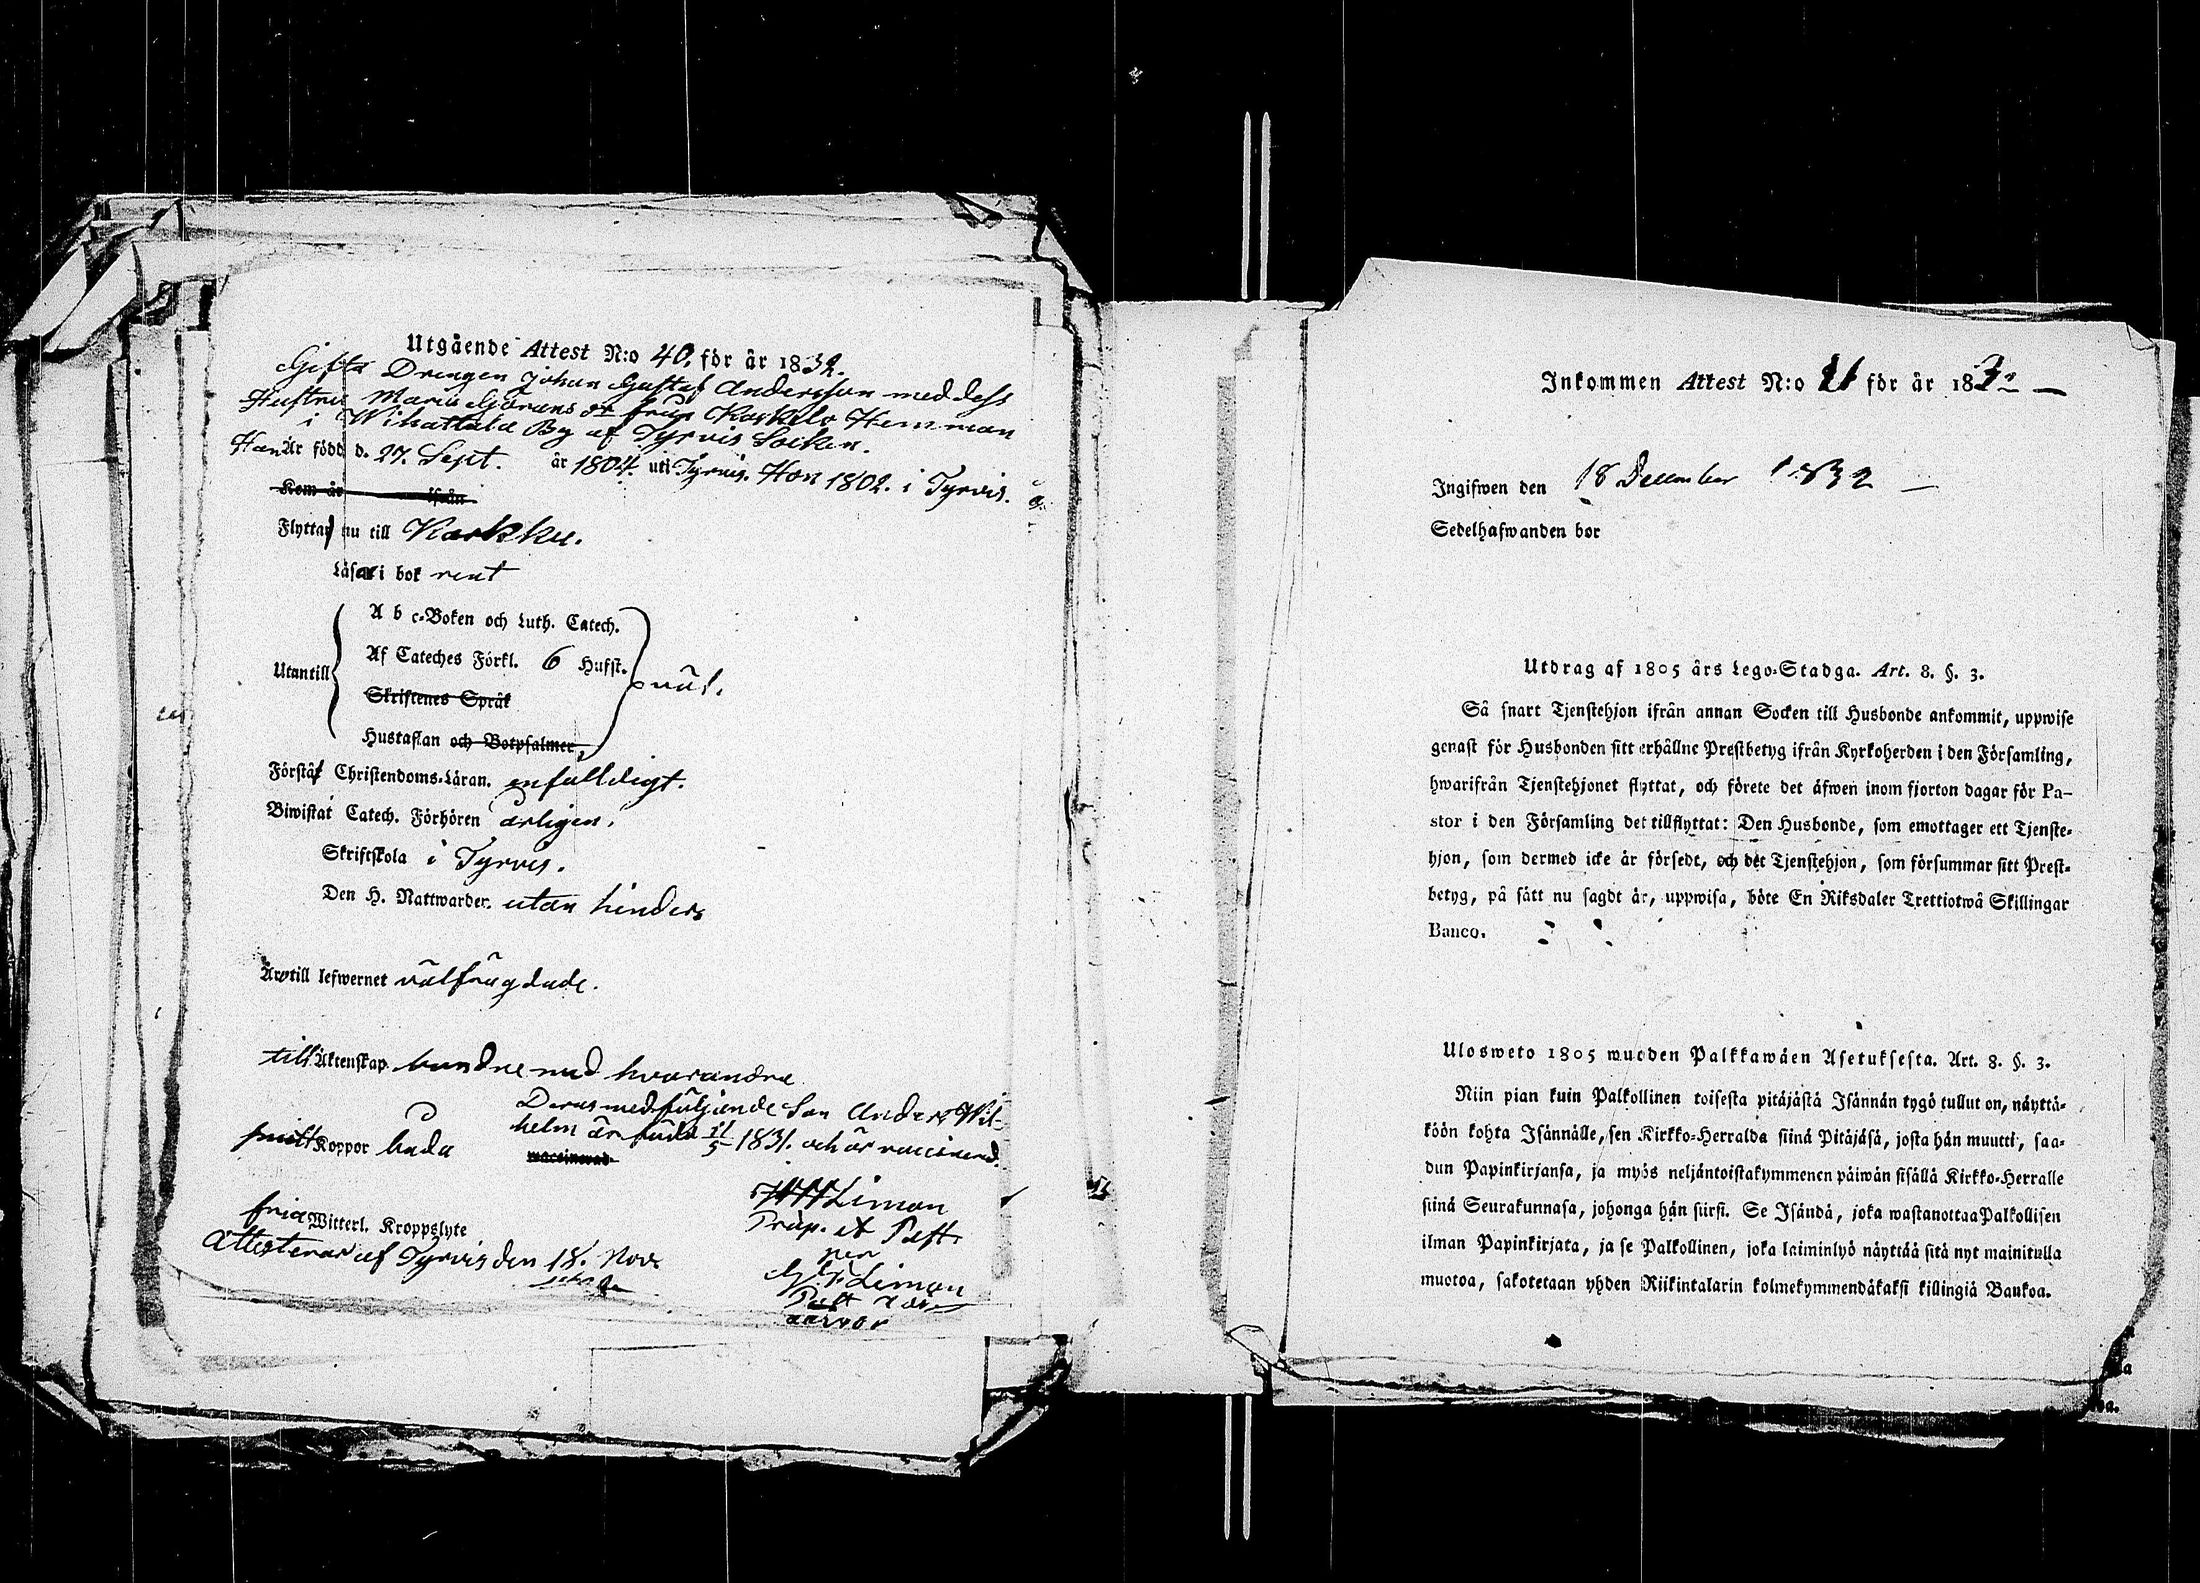 Utgående Attest N:o 40. för år 1832.
Gifta Drengen Johan Gustaf Andersson med dess
Hustru Maria Görans dr från Kaskelo Hemman
i Wihattala By af Tyrvis Socken.
Han Är född d. 27. Sept. år 1804. uti Tyrvis. Hon 1802. i Tyrvis.
Kom år ifrån
Flyttar nu till Karkku.
Läsa i bok rent
A b c-Boken och Luth. Catech.
Af Cateches Förkl. 6 Hufst.
Utantill väl.
Skriftenes Språk
Hustaflan och Botpsalmer,
Förstå Christendoms-Läran. enfalldigt.
Biwistat Catech. Förhören årligen.
Skriftskola i Tyrvis.
Den H. Nattwarden. utan hinder
Äro till lefwernet välfrägdade.
till Äktenskap bundne med hvarandra
Deras medföljande Son Anders Wil-
helm är född 11/5 1831. och är vaccinerad.
vaccinerad
Koppor båda
fria Witterl. Kroppslyte
Attesterar af Tyrvis den 18. Nov.
Limon
Präp. et Past.
per
G. F. Limon
Past
Inkommen Attest N:o för år 1832
Ingifwen den 18 December 1832
Sedelhafwanden bor
Utdrag af 1805 års Lego-Stadga. Art. 8. §. 3.
Så snart Tjenstehjon ifrån annan Socken till Husbonde ankommit, uppwise
genast för Husbonden sitt erhållne Prestbetyg ifrån Kyrkoherden i den Församling,
hwarifrån Tjenstehjonet flyttat, och förete det äfwen inom fjorton dagar för Pa-
stor i den Församling det tillflyttat: Den Husbonde, som emottager ett Tjenste-
hjon, som dermed icke är försedt, och det Tjenstehjon, som försummar sitt Prest-
betyg, på sätt nu sagdt är, uppwisa, böte En Riksdaler Trettiotwå Skillingar
Banco.
Ulosweto 1805 wuoden Palkkawäen Asetuksesta. Art. 8. §. 3.
Niin pian kuin Palkollinen toisesta pitäjästä Isännän tygö tullut on, näyttä-
köön kohta Isännälle, sen Kirkko-Herralda siinä Pitäjäsä, josta hän muutti, saa-
dun Papinkirjansa, ja myös neljäntoistakymmenen päiwän sisällä Kirkko-Herralle
siinä Seurakunnasa, johonga hän siirsi. Se Isändä, joka wastanottaa Palkollisen
ilman Papinkirjata, ja se Palkollinen, joka laiminlyö näyttää sitä nyt mainitulla
muotoa, sakotetaan yhden Riikintalarin kolmekymmendäkaksi killingiä Baukoa.